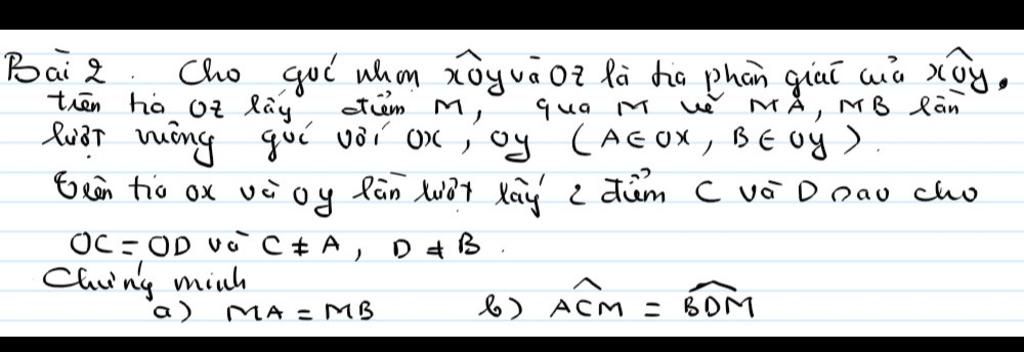 Bài 2. Cho góc nhọn xÔy và Oz là tia phân giác của xÔy.
trên tia Oz lấy điểm M, qua M vẽ MA, MB lần
lượt vuông góc với Ox, Oy (A ∈ Ox, B ∈ Oy).
trên tia Ox và Oy lần lượt lấy 2 điểm C và D sao cho
OC = OD và C ≠ A, D ≠ B.
Chứng minh
a) MA = MB b) \widehat{ACM} = \widehat{BDM}